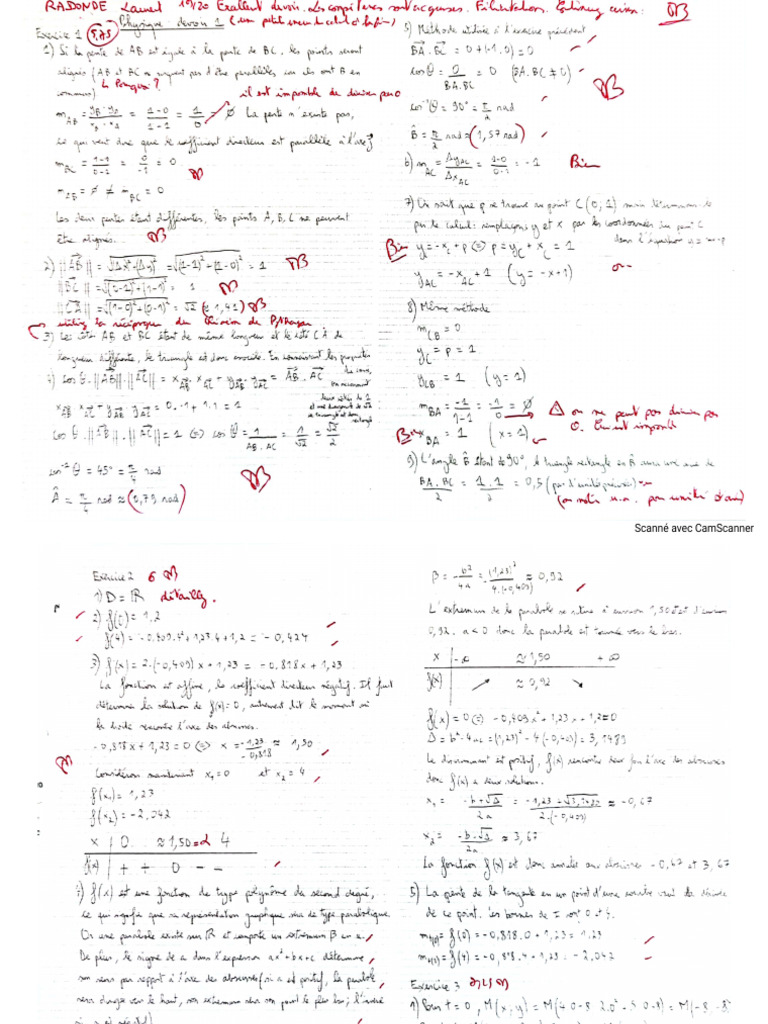 RADONDE Laurent 19/20 Excellent devoir. Les compétences sont acquises. Félicitations. Continuez ainsi. TB
Physique : devoir 1 (une petite erreur de calcul à la fin)
Exercice 1 5,75
1) Si la pente de AB est égale à la pente de BC, les points seront
alignés (AB et BC ne peuvent pas être parallèles car ils ont B en
commun) Pourquoi ?
il est impossible de diviser par 0
m_AB = = 1-0/1-1 = 1/0 = ∅ La pente n'existe pas,
ce qui veut dire que le coefficient directeur est parallèle à l'axe y
m_BC = 1-1/0-1 = 0/-1 = 0
TB
m_AB = ∅ ≠ m_BC = 0
Les deux pentes étant différentes, les points A, B, C ne peuvent
être alignés. TB
2) ||AB|| = = √(1-1)²+(1-0)² = 1 TB
||BC|| = √(0-1)²+(1-1)² = 1 TB
||CA|| = √(1-0)²+(0-1)² = √2 (≈ 1,41) TB
utilisez la réciproque du théorème de Pythagore
3) Les côtés AB et BC étant de même longueur et le côté CA de
longueur différente, le triangle est donc isocèle. En connaissant les propriétés
cos θ . ||AB|| . ||AC|| = x_AB x_AC + y_AB . y_AC = AB . AC
x_AB x_AC + y_AB y_AC = 0.-1 + 1.1 = 1
cos θ . ||AB|| . ||AC|| = 1 (=) cos θ = 1/AB.AC = 1/√2 = √2/2
cos⁻¹ θ = 45° = π/4 rad
Â = π/4 rad ≈ (0,79 rad) TB
5) Méthode utilisée à l'exercice précédent
BA . BC = 0 + (-1.0) = 0
cos θ = 0/BA.BC = 0 (BA.BC ≠ 0) TB
cos⁻¹ θ = 90° = π/2 rad
B̂ = π/2 rad ≈ (1,57 rad)
6) m_AC = Δy_AC/Δx_AC = 1-0/0-1 = -1 Bien
7) On sait que p se trouve au point C (0, 1) mais déterminons-le
par le calcul : remplaçons y et x par les coordonnées du point C
dans l'équation
Bien y = -x + p (=) p = y_C + x_C = 1
y_AC = -x_AC + 1 (y = -x+1) oui
8) Même méthode
m_CB = 0
y_C = p = 1
y_CB = 1 (y = 1)
m_BA = -1/1-1 = -1/0 = ∅ ⚠ on ne peut pas diviser par
0. C'est impossible
Bien x_BA = 1 (x = 1)
9) L'angle B̂ étant de 90°, le triangle rectangle en B aura une aire de
BA.BC/2 = 1.1/2 = 0,5 (par l'unité prévue)
(on note u.a. pour unité d'aire)
Scanné avec CamScanner
Exercice 2 6 TB
1) D = ℝ détaillez.
2) f(0) = 1,2
f(4) = -0,409.4² + 1,23.4 + 1,2 = -0,424
3) f'(x) = 2.(-0,409)x + 1,23 = -0,818x + 1,23
La fonction est affine, le coefficient directeur négatif. Il faut
déterminer la solution de f'(x) = 0, autrement dit le moment où
la droite rencontre l'axe des abscisses.
-0,818x + 1,23 = 0 (=) x = -1,23/-0,818 ≈ 1,50
TB
Considérons maintenant x₁ = 0 et x₂ = 4
f'(x₁) = 1,23
f'(x₂) = -2,042
x | 0 ≈ 1,50 = α 4
f'(x) | + + 0 - -
f(x) est une fonction de type polynôme du second degré,
ce qui signifie que sa représentation graphique sera de type parabolique.
Or une parabole existe sur ℝ et comporte un extremum β en α.
De plus, le signe de a dans l'expression ax² + bx + c détermine
son sens par rapport à l'axe des abscisses (si a est positif, la parabole
sera dirigée vers le haut, son extremum sera son point le plus bas ; l'inverse
si a est négatif)
β = -b²/4a = -(1,23)²/4.(-0,409) ≈ 0,92
L'extremum de la parabole se situe à environ 1,50 et est d'environ
0,92. a < 0 donc la parabole est tournée vers le bas.
x | -∞ ≈ 1,50 +∞
f(x) | ↗ ≈ 0,92 ↘
f(x) = 0 (=) -0,409x² + 1,23x + 1,2 = 0
Δ = b² - 4ac = (1,23)² - 4(-0,409) = 3,1489
Le discriminant est positif, f(x) rencontre deux fois l'axe des abscisses
donc f(x) a deux solutions.
x₁ = -b+√Δ/2a = -1,23+√3,1489/2.(-0,409) ≈ -0,67
x₂ = -b-√Δ/2a ≈ 3,67
La fonction f(x) est donc annulée aux abscisses -0,67 et 3,67
5) La pente de la tangente en un point d'une courbe vaut la dérivée
de ce point. Les bornes de I sont 0 et 4.
= f'(0) = -0,818.0 + 1,23 = 1,23
= f'(4) = -0,818.4 + 1,23 = -2,042
Exercice 3 TB
1) Pour t = 0, M(x; y) = M(4.0-8; 2.0²-5.0-8) = M(-8; -8)